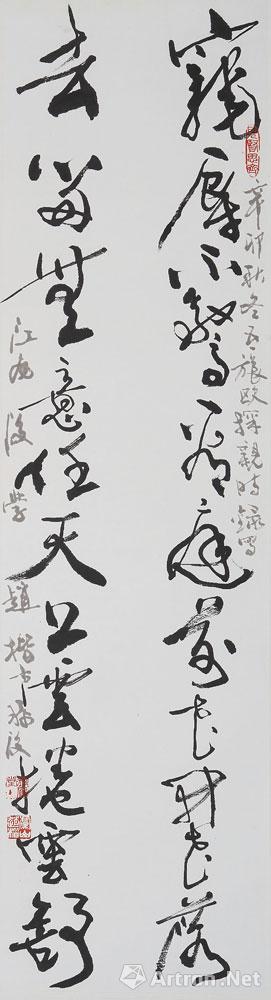 寵辱不驚看庭前花開花落
去留無意任天上雲卷雲舒
辛卯秋冬古旅歐探親時錄寫
江南後學
趙
Artron.Net